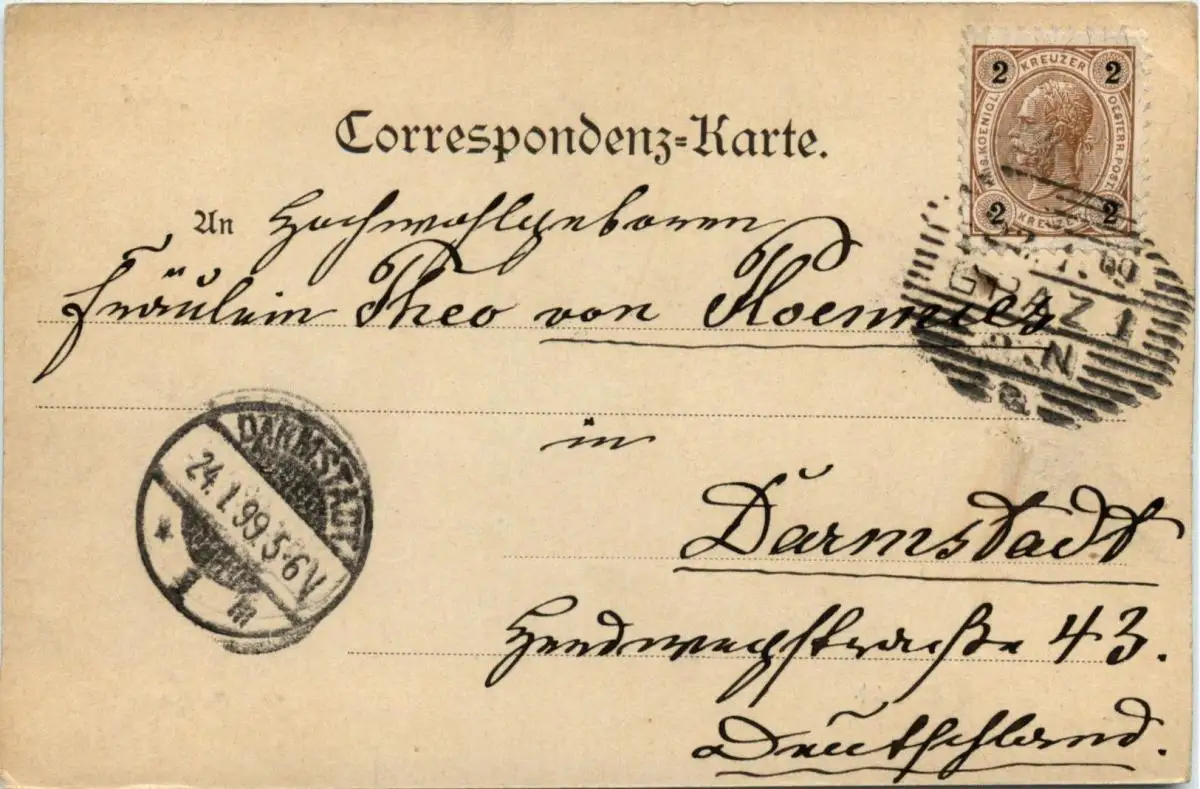 Correspondenz-Karte.
2 KREUZER 2
KAIS. KOENIGL. OESTERR. POST.
2 KREUZER 2
An Hochwohlgeboren
Fräulein Theo von
GRAZ 1
in
DARMSTADT
24.1.99.5-6V
* 1 *
Darmstadt
Heerdwegstraße 43.
Deutschland.